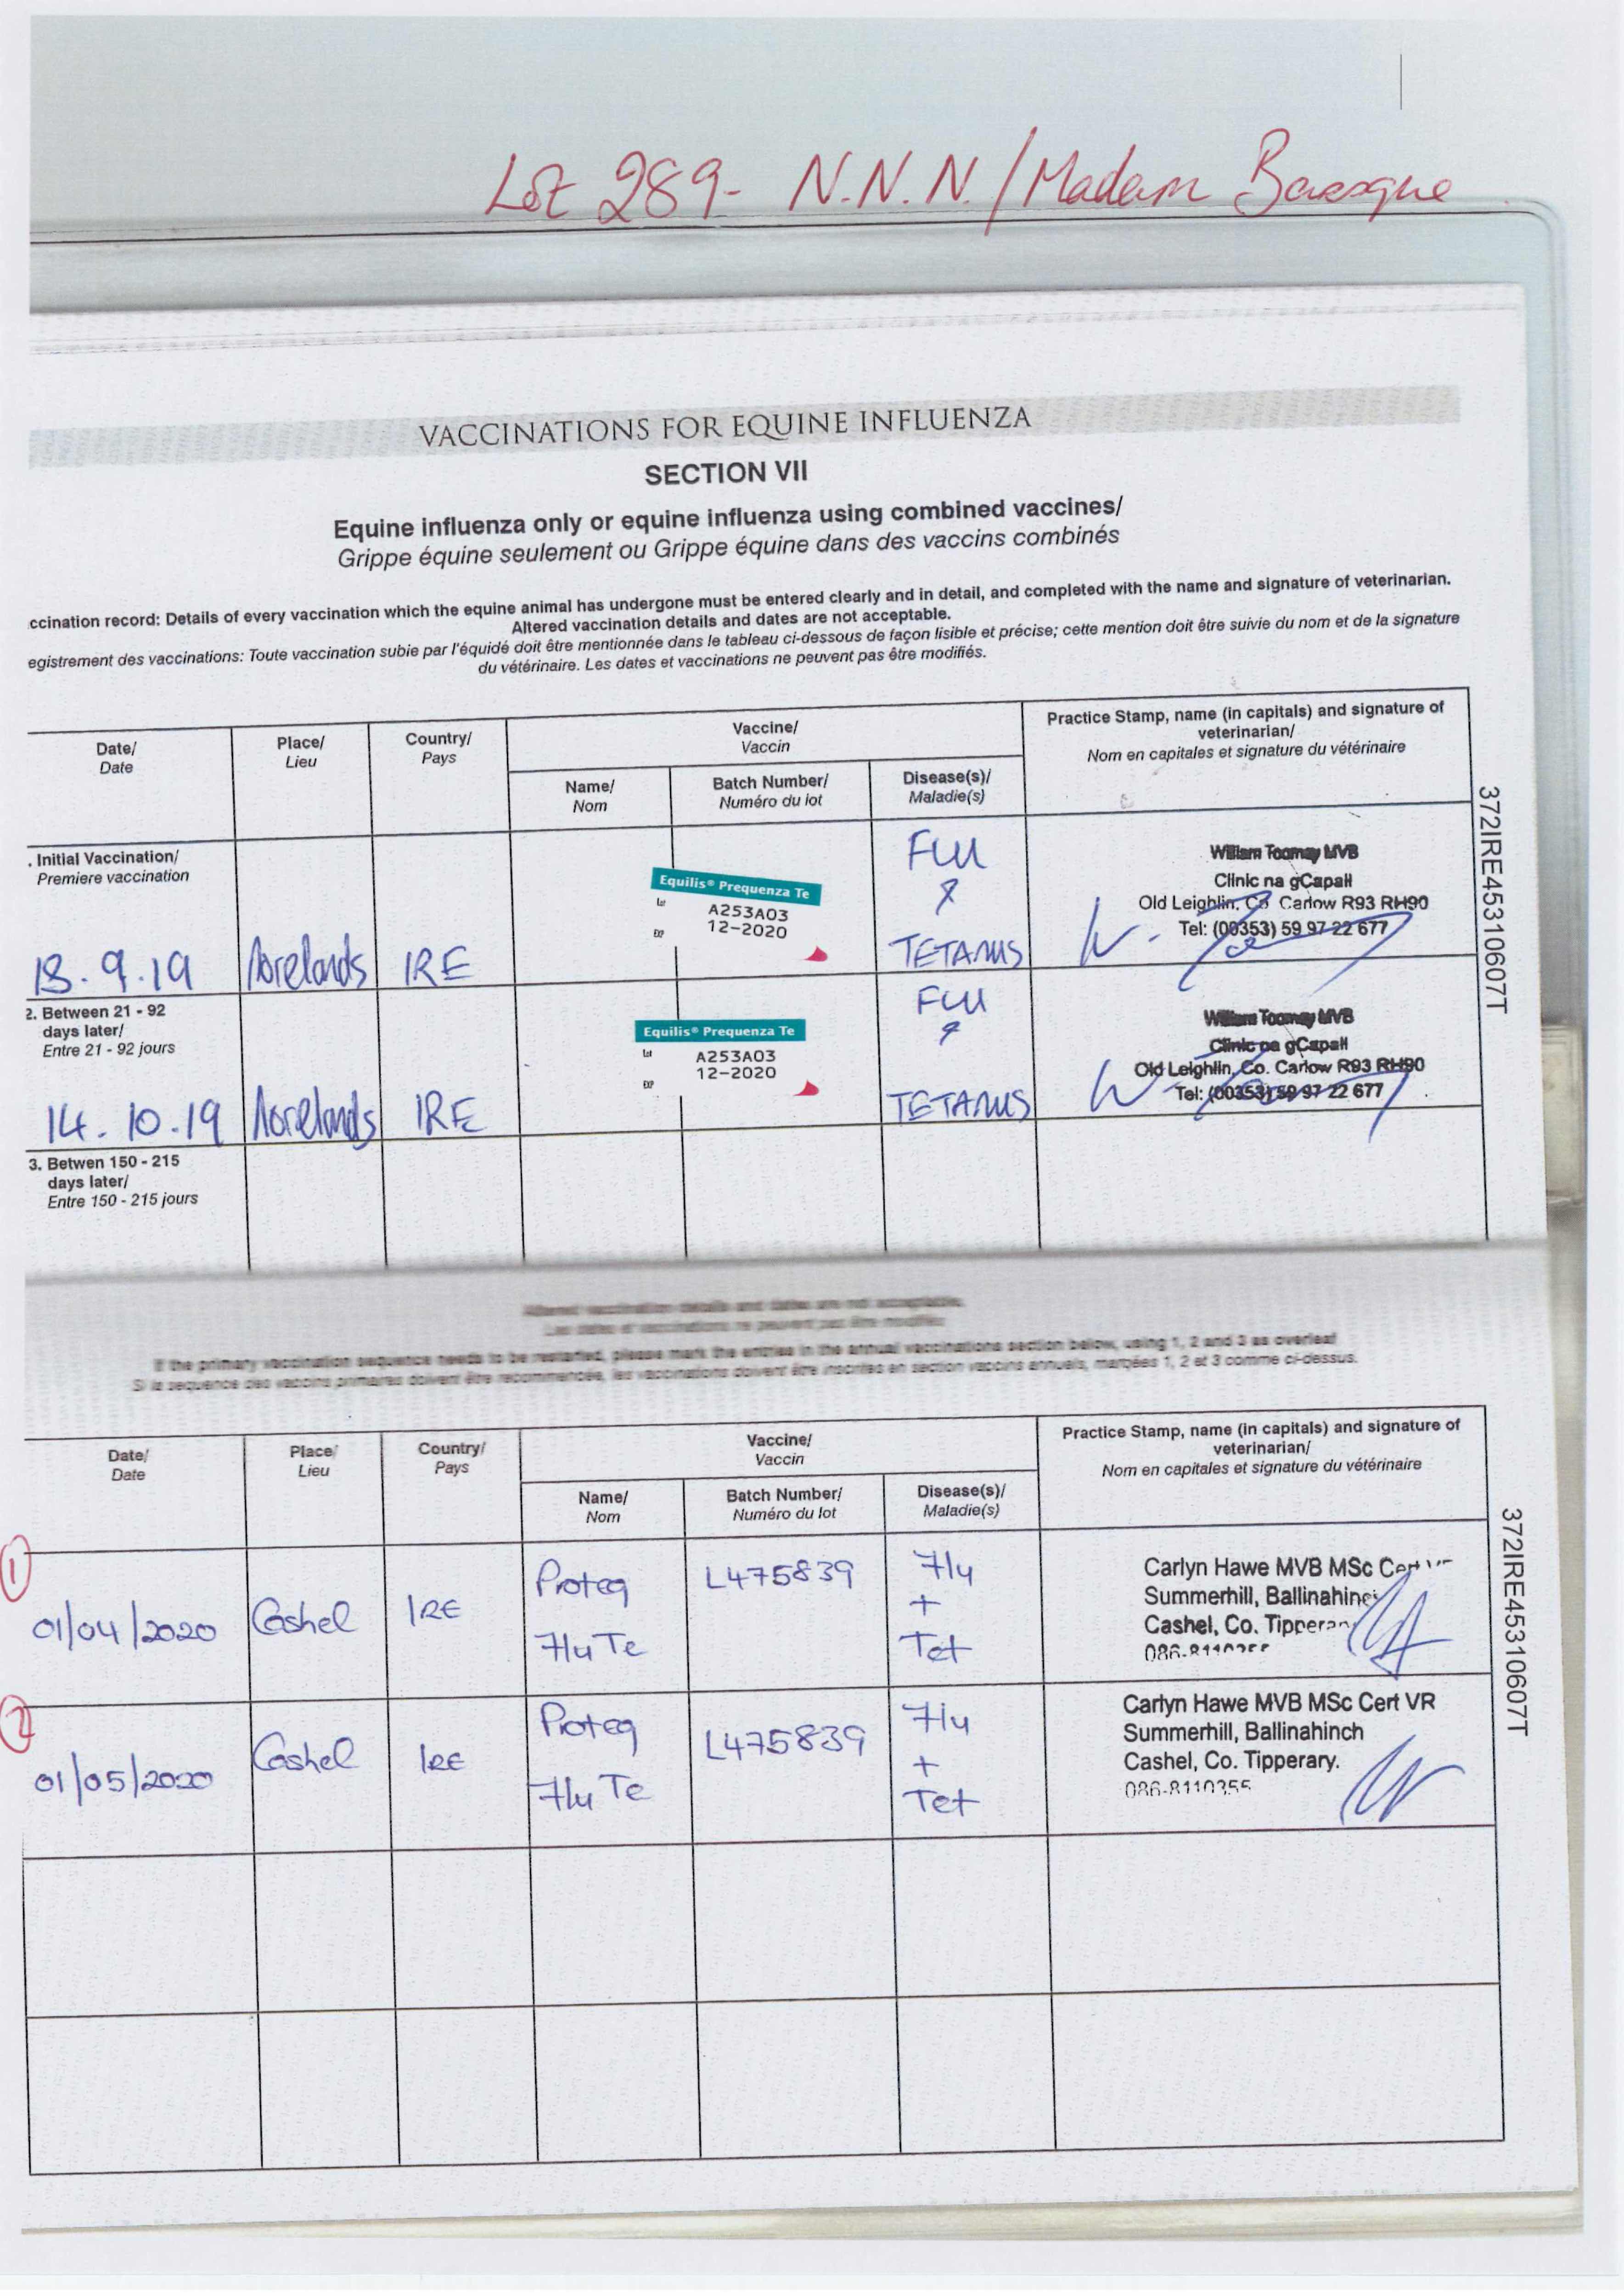 Lot 289- N.N.N./Madam Baroque
VACCINATIONS FOR EQUINE INFLUENZA
SECTION VII
Equine influenza only or equine influenza using combined vaccines/
Grippe équine seulement ou Grippe équine dans des vaccins combinés
ccination record: Details of every vaccination which the equine animal has undergone must be entered clearly and in detail, and completed with the name and signature of veterinarian.
Altered vaccination details and dates are not acceptable.
egistrement des vaccinations: Toute vaccination subie par l'équidé doit être mentionnée dans le tableau ci-dessous de façon lisible et précise; cette mention doit être suivie du nom et de la signature
du vétérinaire. Les dates et vaccinations ne peuvent pas être modifiés.
Date/
Date
Place/
Lieu
Country/
Pays
Vaccine/
Vaccin
Name/
Nom
Batch Number/
Numéro du lot
Disease(s)/
Maladie(s)
Practice Stamp, name (in capitals) and signature of
veterinarian/
Nom en capitales et signature du vétérinaire
. Initial Vaccination/
Premiere vaccination
13.9.19
Norelands
IRE
Equilis® Prequenza Te
Lot
A253A03
EXP
12-2020
FLU
&
TETANUS
William Toomey MVB
Clinic na gCapall
Old Leighlin, Co Carlow R93 RH90
Tel: (00353) 59 97 22 677
2. Between 21 - 92
days later/
Entre 21 - 92 jours
14.10.19
Norelands
IRE
Equilis® Prequenza Te
Lot
A253A03
EXP
12-2020
FLU
&
TETANUS
William Toomey MVB
Clinic na gCapall
Old Leighlin, Co. Carlow R93 RH90
Tel: (00353) 59 97 22 677
3. Betwen 150 - 215
days later/
Entre 150 - 215 jours
372IRE45310607T
Altered vaccination details and dates are not acceptable.
Les dates et vaccinations ne peuvent pas être modifiés
If the primary vaccination sequence needs to be restarted, please mark the entries in the annual vaccinations section below, using 1, 2 and 3 as overleaf
Si la sequence des vaccins primaires doivent être recommencée, les vaccinations doivent être inscrites en section vaccins annuels, marqées 1, 2 et 3 comme ci-dessus.
Date/
Date
Place/
Lieu
Country/
Pays
Vaccine/
Vaccin
Name/
Nom
Batch Number/
Numéro du lot
Disease(s)/
Maladie(s)
Practice Stamp, name (in capitals) and signature of
veterinarian/
Nom en capitales et signature du vétérinaire
1
01/04/2020
Cashel
IRE
Proteq
Flu Te
L475839
Flu
+
Tet
Carlyn Hawe MVB MSc Cert
Summerhill, Ballinahinc
Cashel, Co. Tipperar
2
01/05/2020
Cashel
IRE
Proteq
Flu Te
L475839
Flu
+
Tet
Carlyn Hawe MVB MSc Cert VR
Summerhill, Ballinahinch
Cashel, Co. Tipperary.
086-8110355
372IRE45310607T